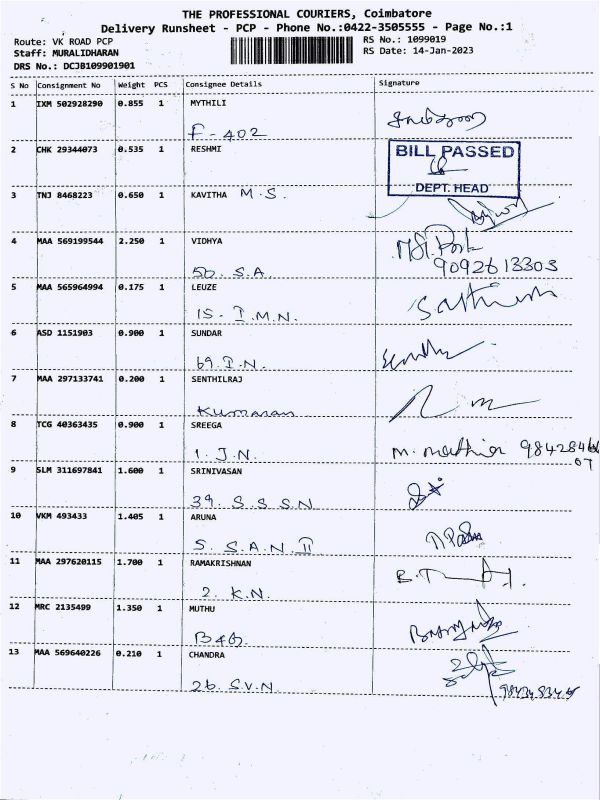 THE PROFESSIONAL COURIERS, Coimbatore
Delivery Runsheet - PCP - Phone No.:0422-3505555 - Page No.:1
Route: VK ROAD PCP
RS No.: 1099019
Staff: MURALIDHARAN
RS Date: 14-Jan-2023
DRS No.: DCJB109901901
S No Consignment No Weight PCS Consignee Details Signature
1 IXM 502928290 0.855 1 MYTHILI
F-402
2 CHK 29344073 0.535 1 RESHMI
BILL PASSED
DEPT. HEAD
3 TNJ 8468223 0.650 1 KAVITHA M.S.
4 MAA 569199544 2.250 1 VIDHYA
50. S.A. 9092613303
5 MAA 565964994 0.175 1 LEUZE
15. I.M.N.
6 ASD 1151903 0.900 1 SUNDAR
69. I.N.
7 MAA 297133741 0.200 1 SENTHILRAJ
Kumaran
8 TCG 40363435 0.900 1 SREEGA
1. J.N.
9 SLM 311697841 1.600 1 SRINIVASAN
39. S.S.S.N
10 VKM 493433 1.405 1 ARUNA
5. S.A.N. II
11 MAA 297620115 1.700 1 RAMAKRISHNAN
2. K.N.
12 MRC 2135499 1.350 1 MUTHU
13 MAA 569640226 0.210 1 CHANDRA
26. S.V.N.